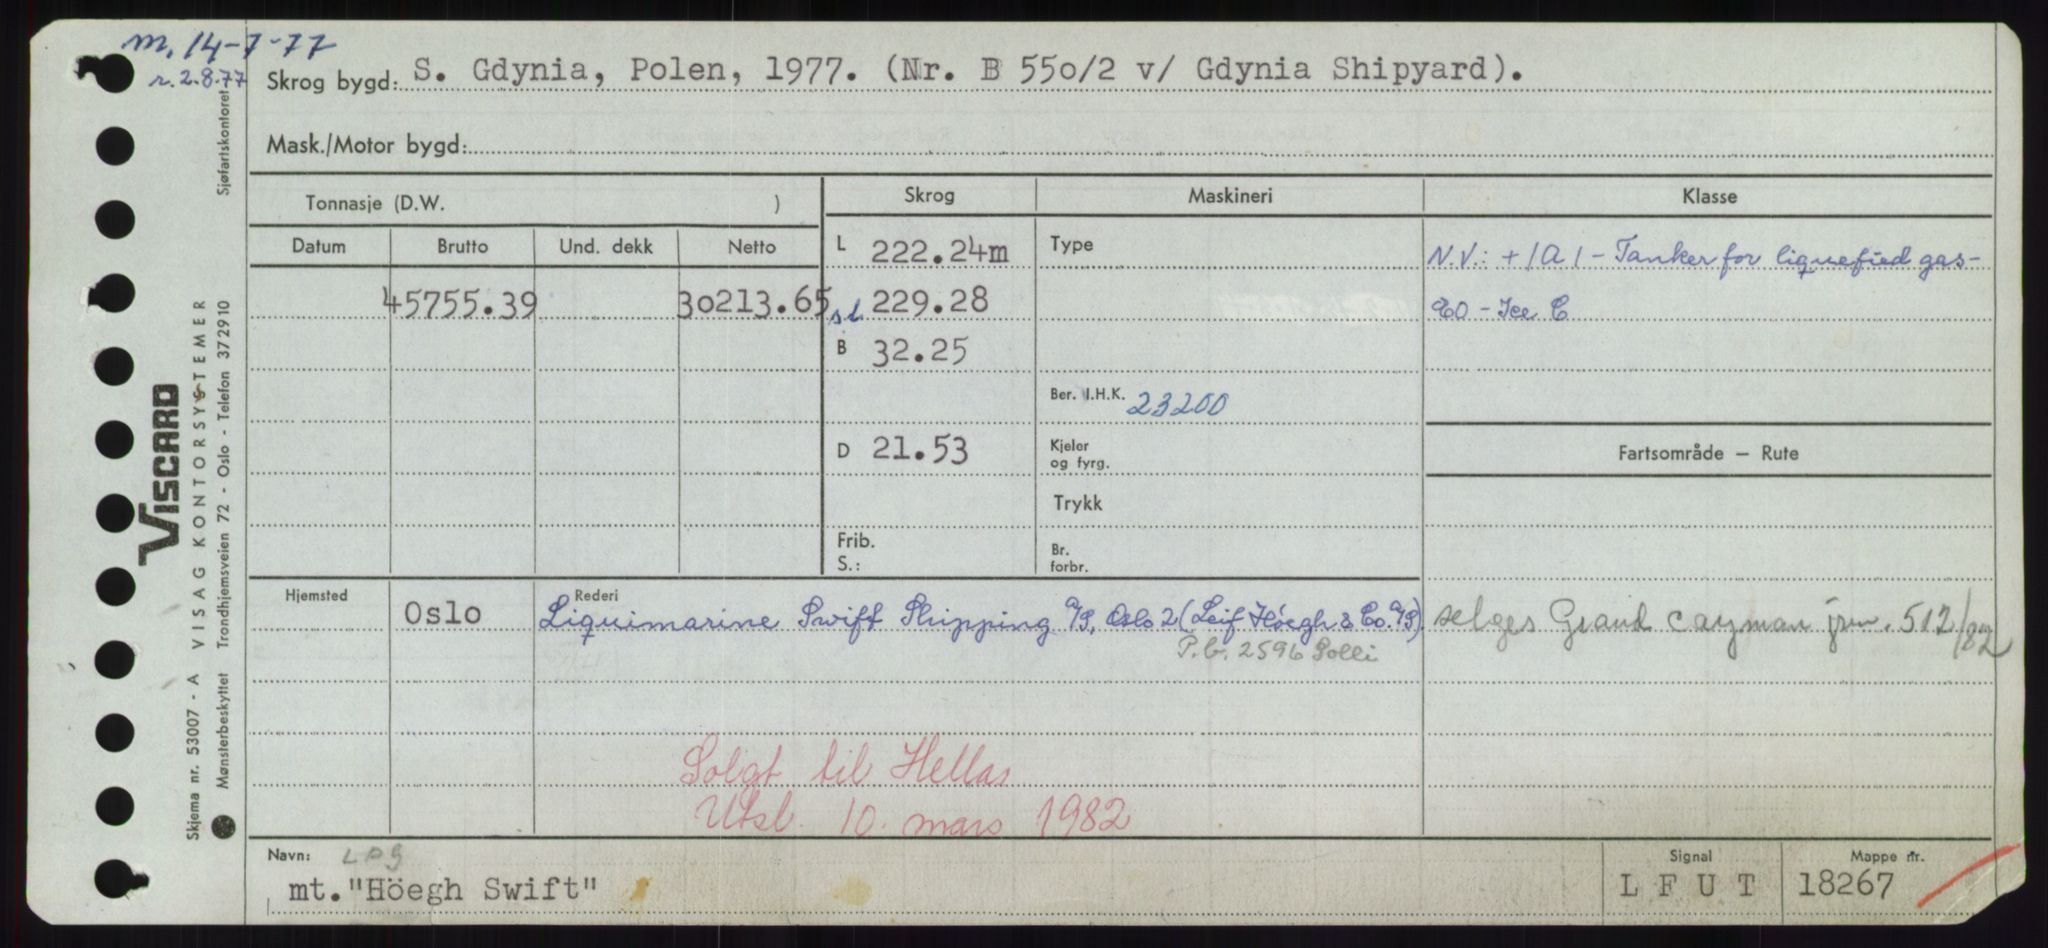 m. 14-7-77
r. 2.8.77
Skrog bygd: S. Gdynia, Polen, 1977. (Nr. B 550/2 v/ Gdynia Shipyard).
Mask./Motor bygd:
Tonnasje (D.W. )
Skrog
Maskineri
Klasse
Datum
Brutto
Und. dekk
Netto
L 222.24m
Type
N.V.: +1A1 - Tanker for liquefied gas -
45755.39
30213.65
sl 229.28
EO - Ice C
B 32.25
Ber. I.H.K. 23200
D 21.53
Kjeler
og fyrg.
Fartsområde — Rute
Trykk
Frib.
S.:
Br.
forbr.
Hjemsted
Oslo
Rederi
Liquimarine Swift Shipping A/S, Oslo 2 (Leif Höegh & Co. A/S)
P.b. 2596 Solli
selges Grand Cayman jrn. 512/82
Solgt til Hellas
Utsl. 10. mars 1982
Navn: LPG
mt. "Höegh Swift"
Signal
L F U T
Mappe nr.
18267
Sjøfartskontoret
VISCARD
Skjema nr. 53007 - A VISAG KONTORSYSTEMER
Mønsterbeskyttet Trondhjemsveien 72 - Oslo - Telefon 372910